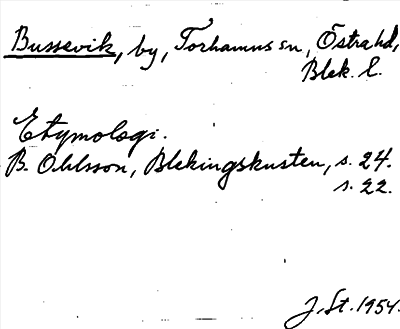 Bussevik, by, Torhamns sn, Östra hd,
Blek. l.
Etymologi.
B. Ohlsson, Blekingskusten, s. 24.
s. 22.
J. St. 1954.